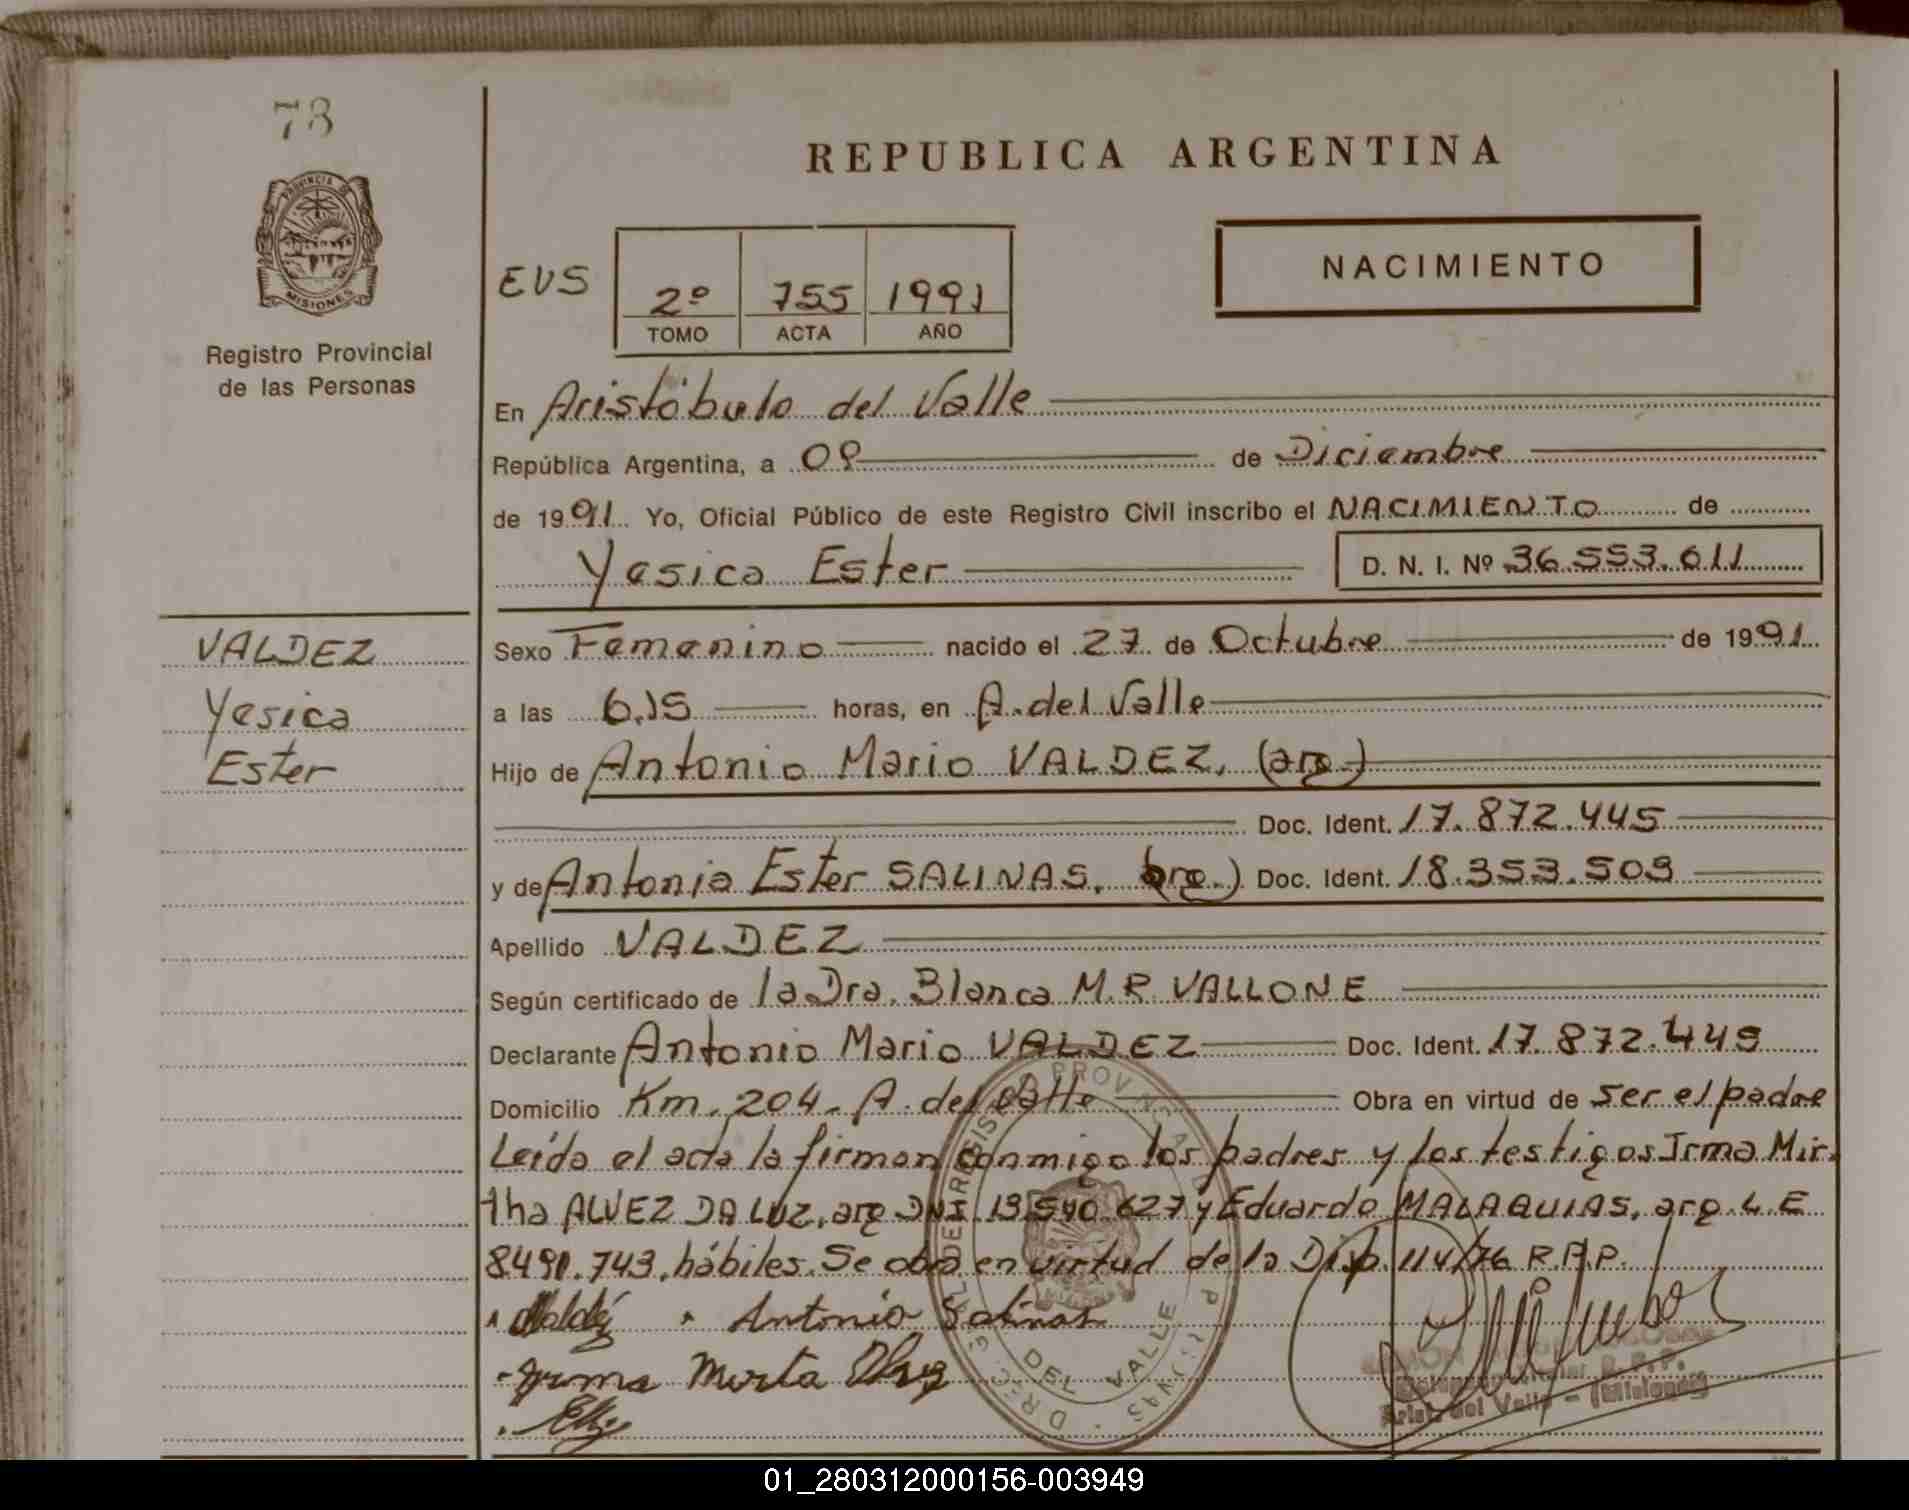 73
REPUBLICA ARGENTINA
PROVINCIA DE
MISIONES
Registro Provincial
de las Personas
EVS
2º 755 1991
TOMO ACTA AÑO
NACIMIENTO
En Aristóbulo del Valle
República Argentina, a 09 de Diciembre
de 1991 Yo, Oficial Público de este Registro Civil inscribo el NACIMIENTO de
Yesica Ester D. N. I. Nº 36.553.611
VALDEZ
Yesica
Ester
Sexo Femenino nacido el 27 de Octubre de 1991
a las 6.15 horas, en A. del Valle
Hijo de Antonio Mario VALDEZ. (arg.)
Doc. Ident. 17.872.445
y de Antonia Ester SALINAS. (arg.) Doc. Ident. 18.353.509
Apellido VALDEZ
Según certificado de la Dra. Blanca M.R. VALLONE
Declarante Antonio Mario VALDEZ Doc. Ident. 17.872.445
Domicilio Km. 204. A. del Valle Obra en virtud de ser el padre
Leída el acta la firman conmigo los padres y los testigos Irma Mir.
tha ALVEZ DA LUZ, arg DNI 13.540.627 y Eduardo MALAQUIAS, arg. L E
8491.743. hábiles. Se obra en virtud de la Disp 114/76 R.P.P.
Valdéz Antonia Salinas
Irma Mirta
DEL VALLE
Arist. del Valle - (Misiones)
01_280312000156-003949